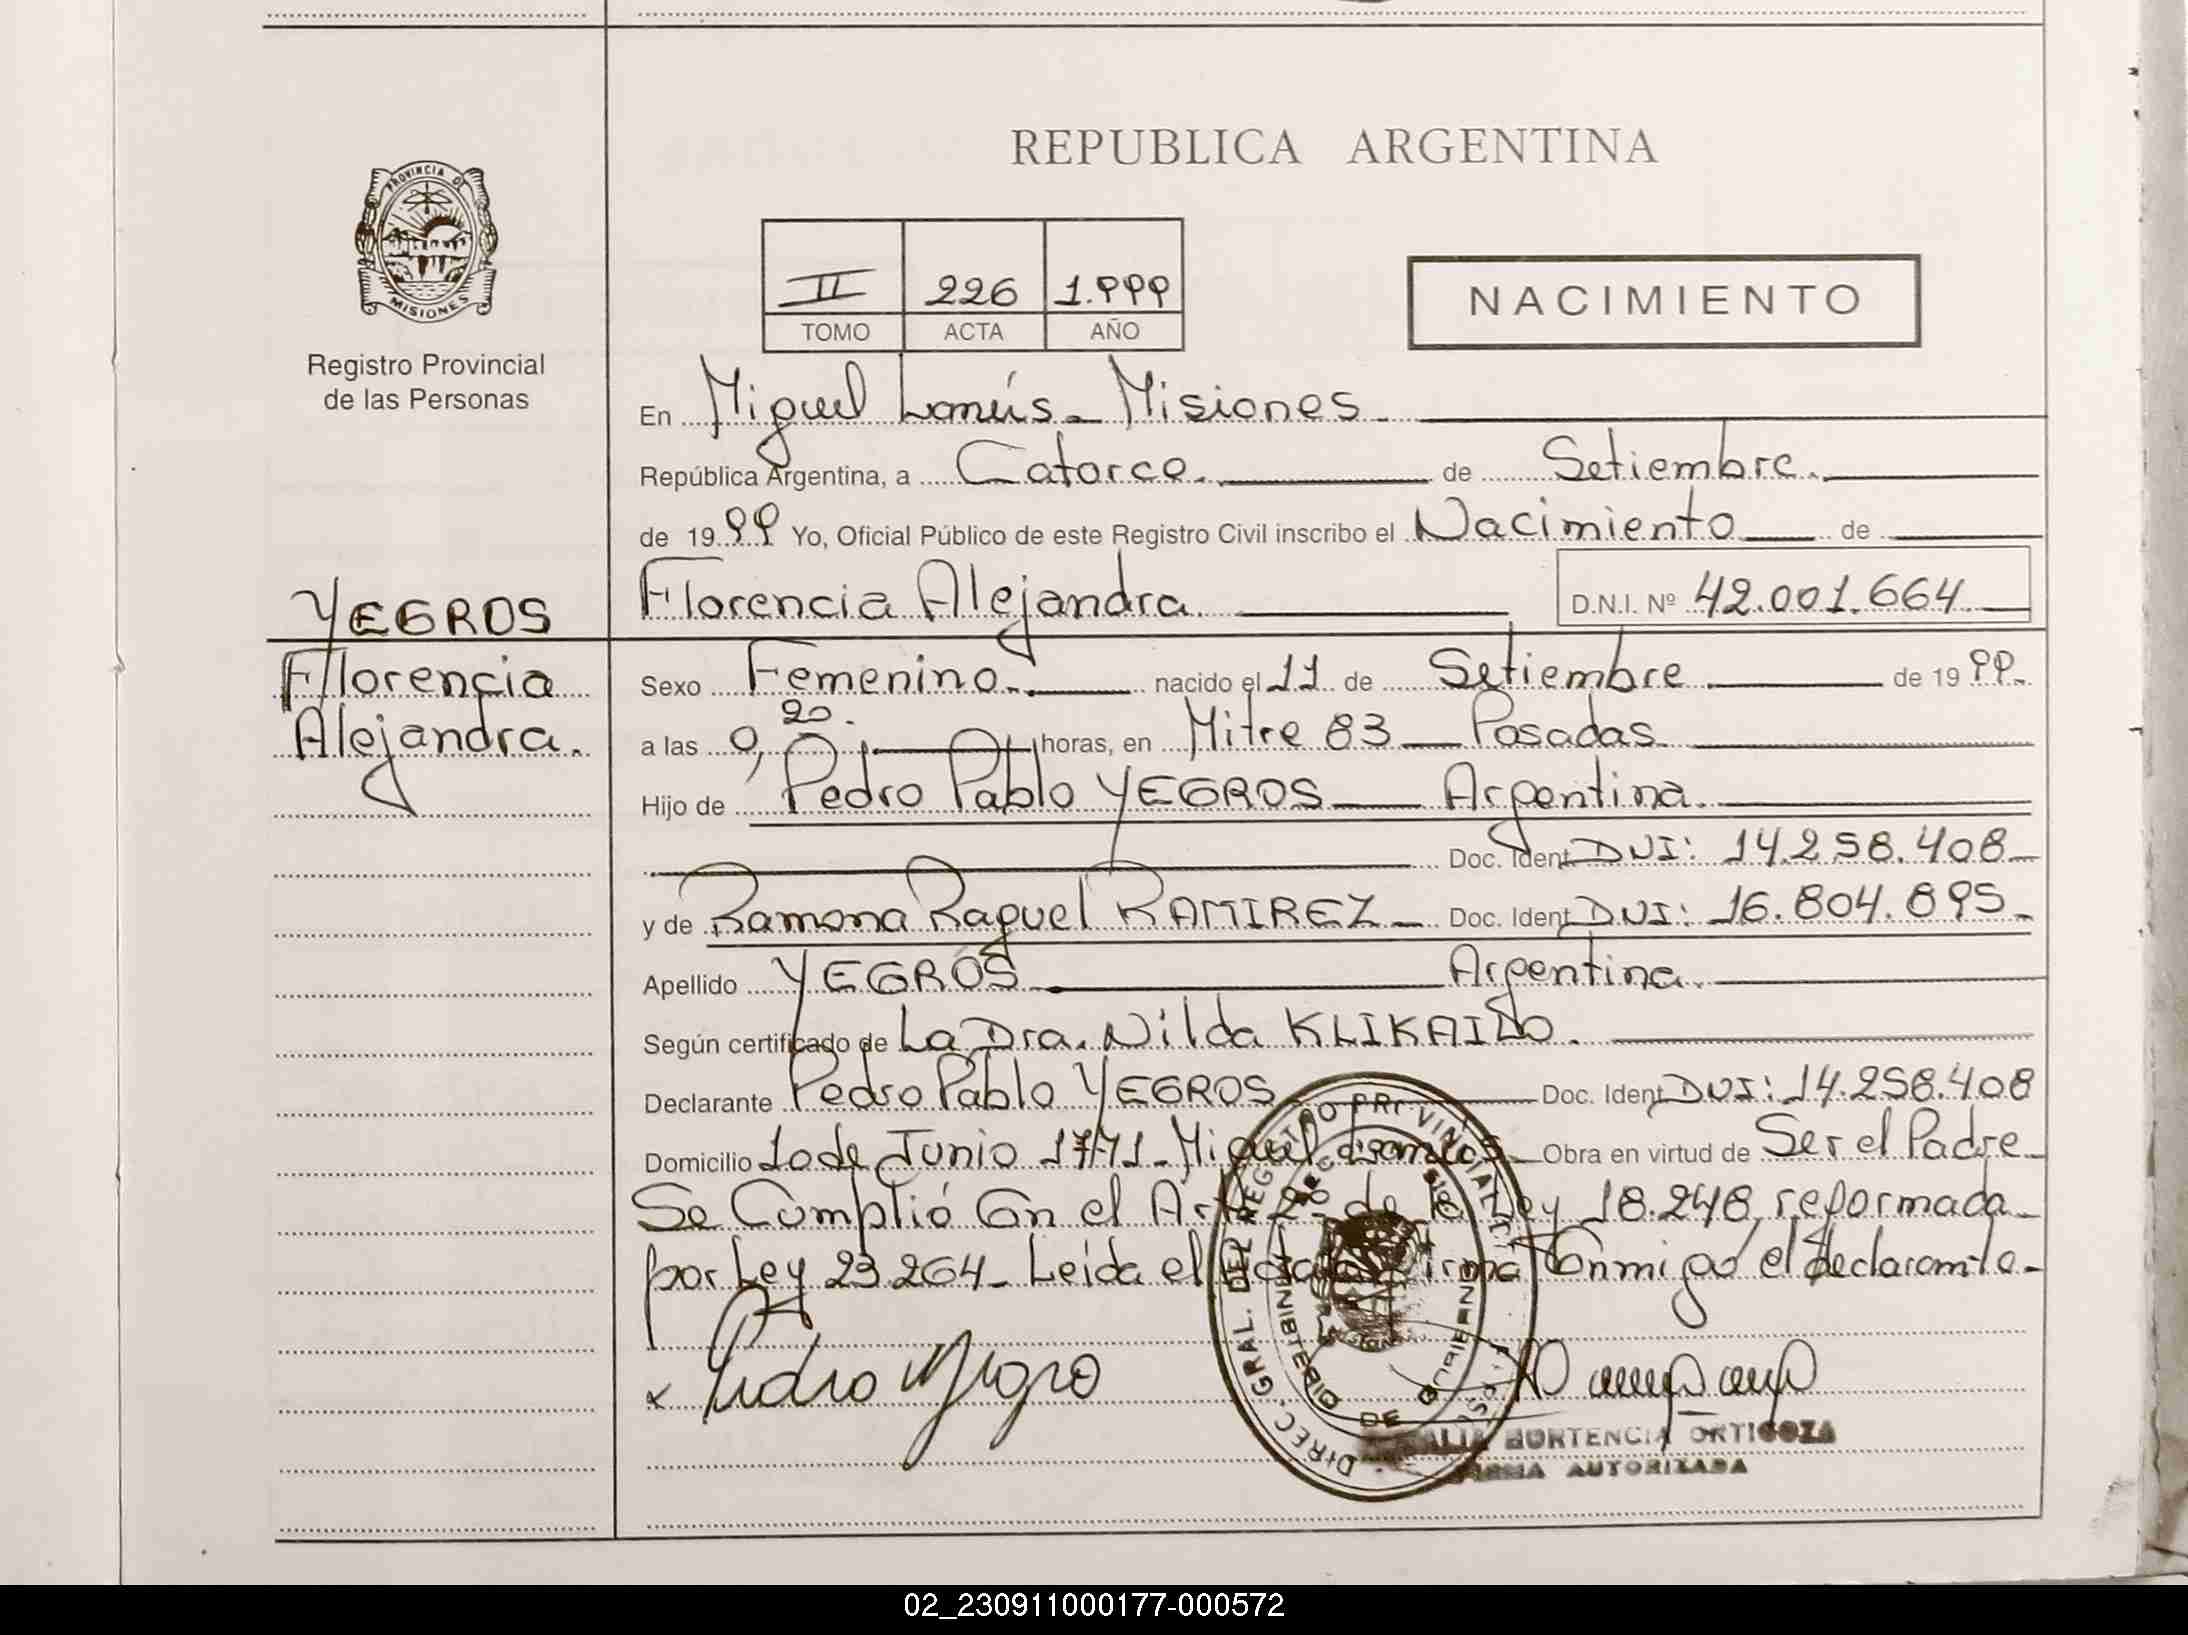 REPUBLICA ARGENTINA
PROVINCIA DE
MISIONES
Registro Provincial
de las Personas
II 226 1.999
TOMO ACTA AÑO
NACIMIENTO
En Miguel Lanús - Misiones
República Argentina, a Catorce. de Setiembre.
de 1999 Yo, Oficial Público de este Registro Civil inscribo el Nacimiento de
YEGROS
Florencia
Alejandra.
Florencia Alejandra D.N.I. Nº 42.001.664
Sexo Femenino. nacido el 11 de Setiembre de 1999.
a las 0,20. horas, en Mitre 83 Posadas
Hijo de Pedro Pablo YEGROS Argentina.
Doc. Ident. DNI: 14.258.408
y de Ramona Raquel RAMIREZ Doc. Ident. DNI: 16.804.895
Apellido YEGROS Argentina.
Según certificado de La Dra. Nilda
Declarante Pedro Pablo YEGROS Doc. Ident. DNI: 14.258.408
Domicilio 10 de Junio 1771 - Miguel Lanús Obra en virtud de Ser el Padre
Se Cumplió Con el Art. 2º de la Ley 18.248, reformada
por Ley 23.264 - Leída el Acta Firma Conmigo el declarante.
x Pedro Yegro
DIREC. GRAL. DEL REGISTRO PROVINCIAL
DE
HORTENCIA ORTIGOZA
FIRMA AUTORIZADA
02_230911000177-000572